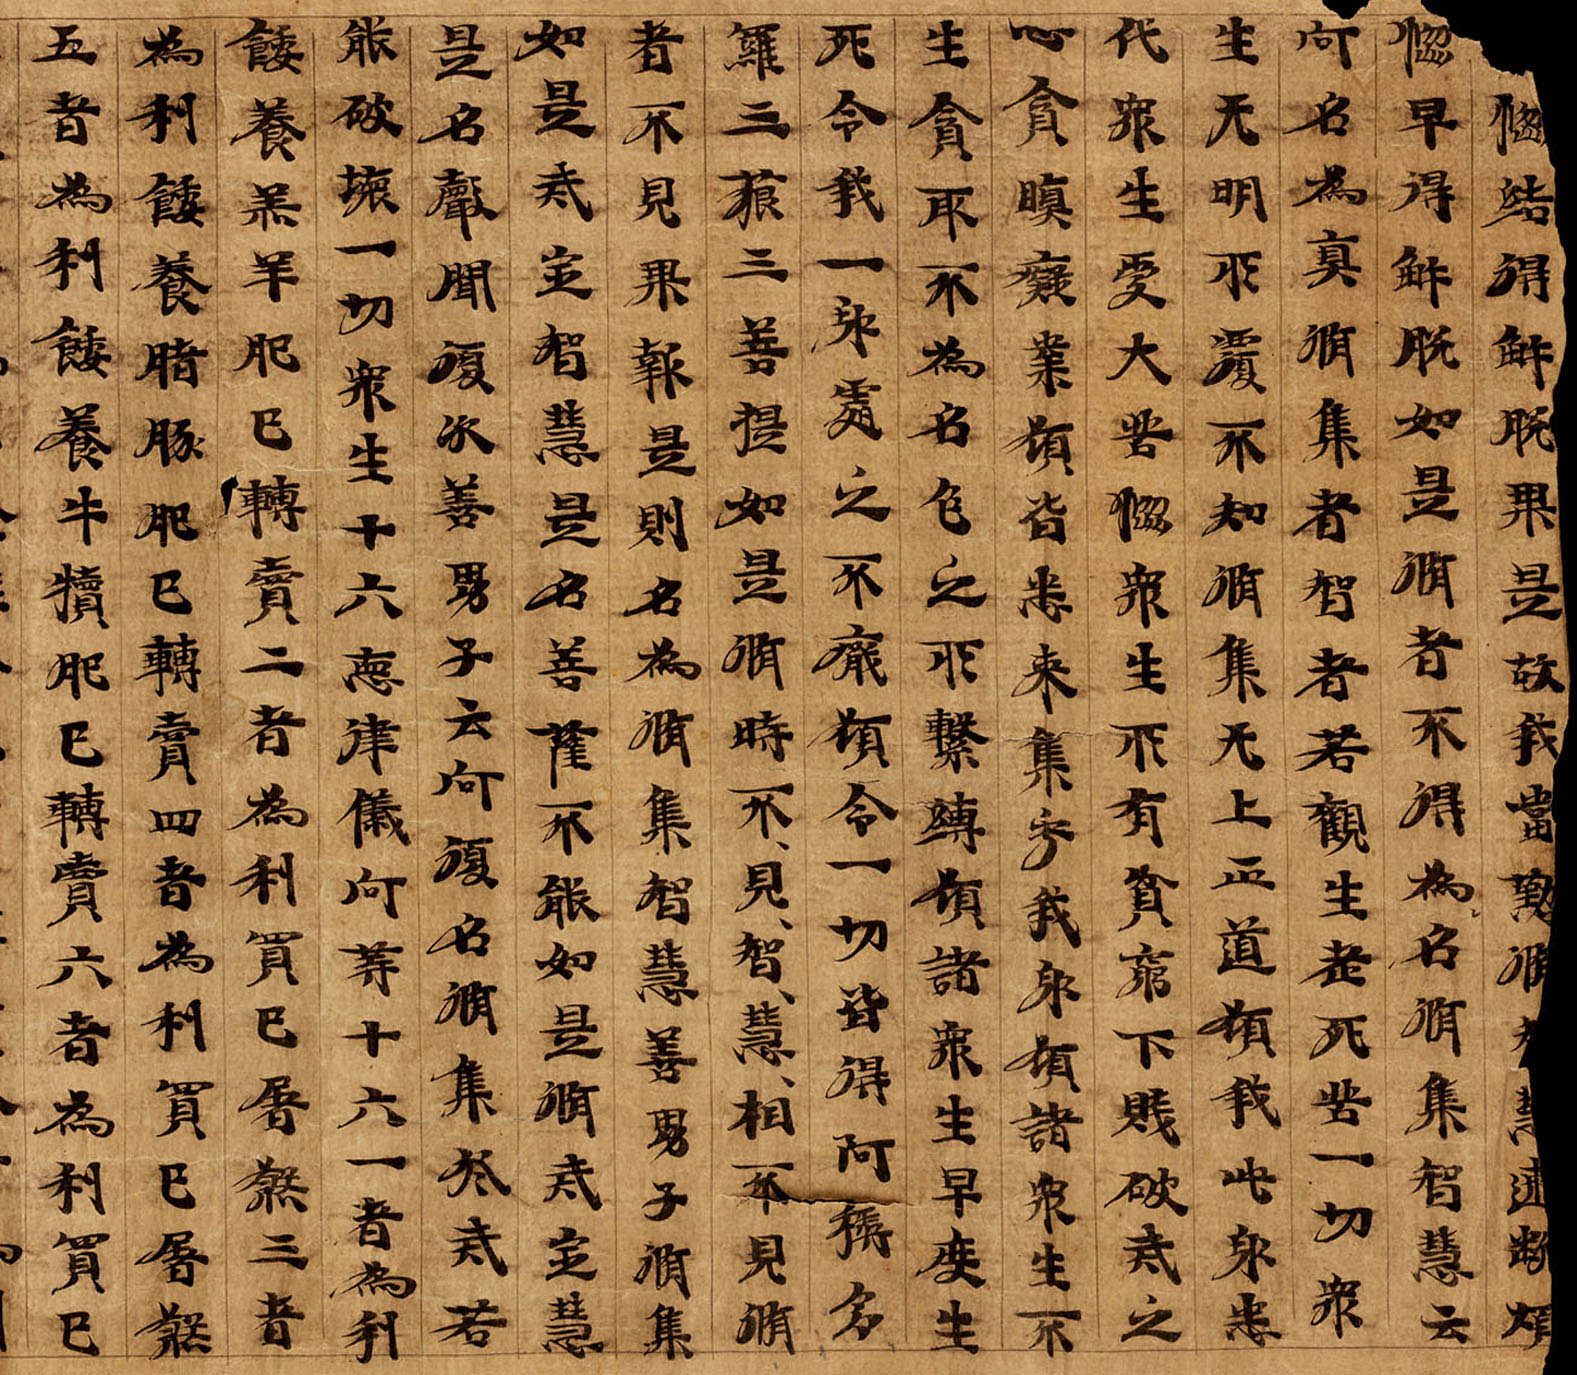 惱結得解脫果是故我當懃脩智慧速斷煩
惱早得解脫如是脩者不得為名脩集智慧云
何名為真脩集者智者若觀生老死苦一切衆
生无明所覆不知脩集无上正道願我此身悉
代衆生受大苦惱衆生所有貧窮下賤破戒之
心貪瞋癡業願皆悉来集于我身願諸衆生不
生貪取不為名色之所繫縛願諸衆生早度生
死令我一身處之不猒願令一切皆得阿耨多
羅三藐三菩提如是脩時不、見、智、慧、相不見脩
者不見果報是則名為脩集智慧善男子脩集
如是戒定智慧是名菩薩不能如是脩戒定慧
是名聲聞復次善男子云何復名脩集於戒若
能破壞一切衆生十六惡律儀何等十六一者為利
餧養羔羊肥已轉賣二者為利買已屠煞三者
為利餧養腤豚肥已轉賣四者為利買已屠煞
五者為利餧養牛犢肥已轉賣六者為利買已